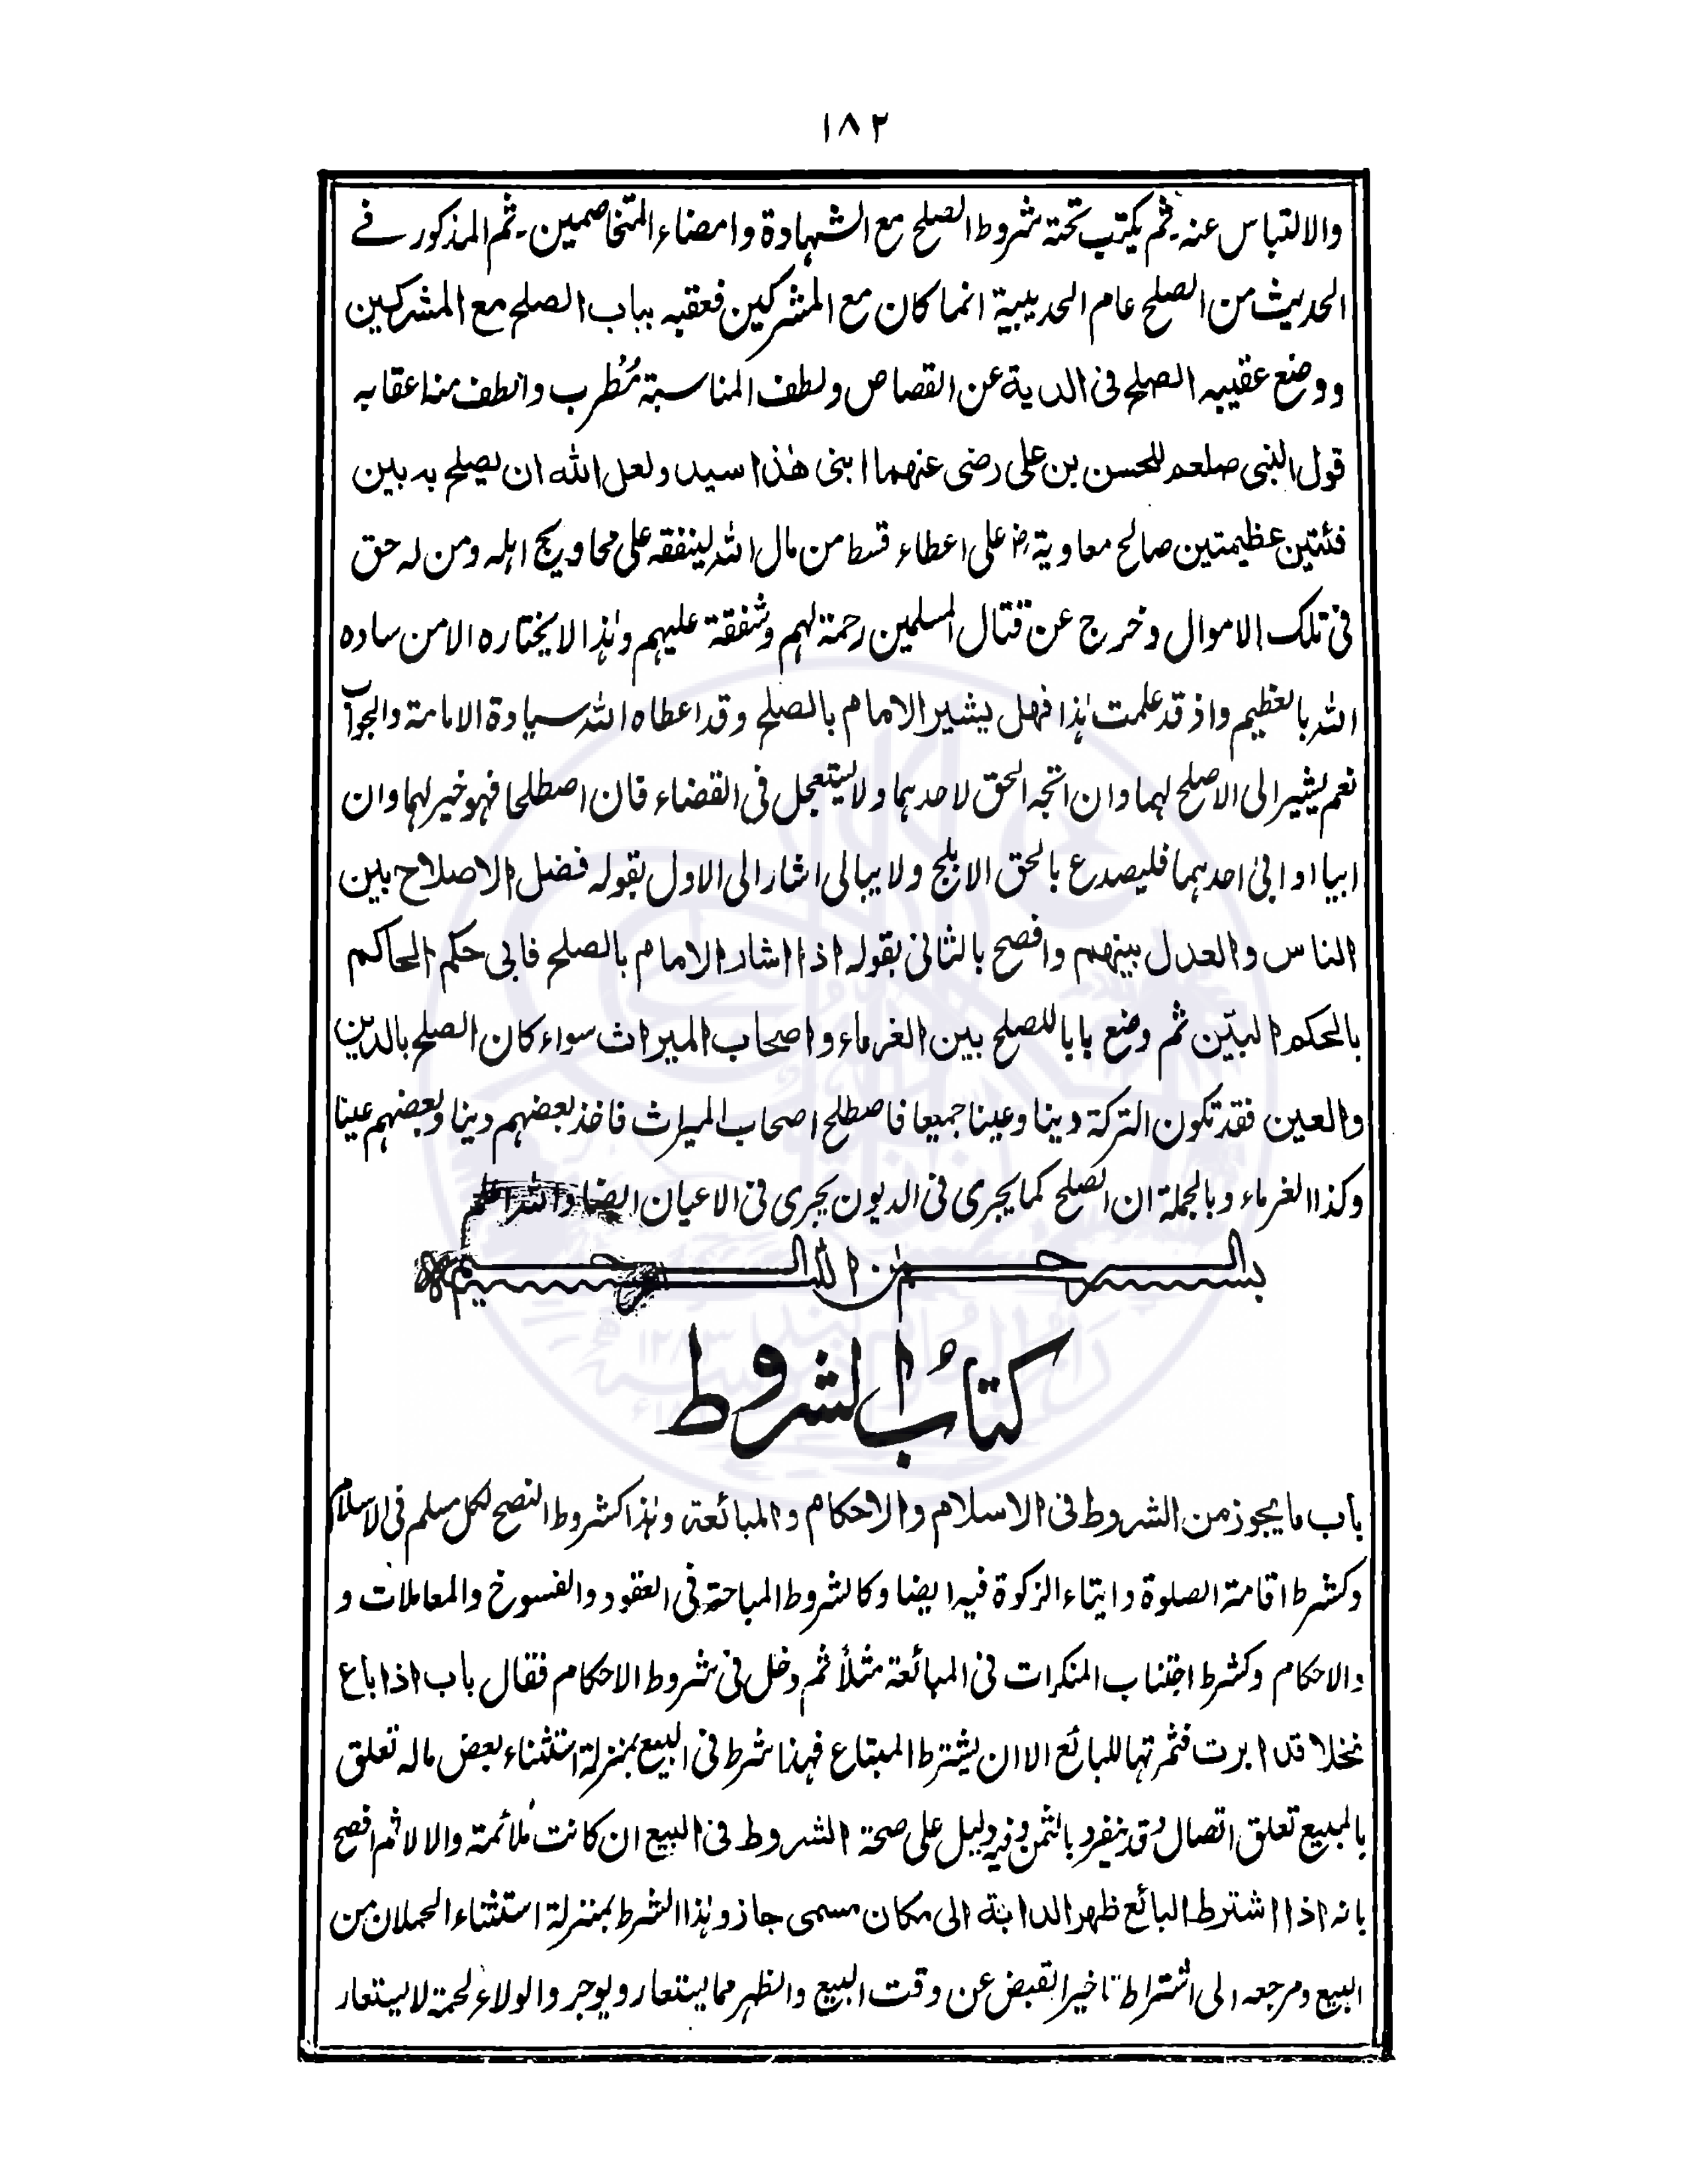 ١٨٢
والالتباس عنه۔ ثم يكتب تحته شروط الصلح مع الشهادة وامضاء المتخاصمين۔ ثم المذكور فے
الحديث من الصلح عام الحديبية انما كان مع المشركين فعقبه بباب الصلح مع المشركين
ووضع عقيبه الصلح فى الدية عن القصاص ولطف المناسبة مُطرب والطف منه اعقابه
قول النبى صلعم للحسن بن على رضى عنهما ابنى هٰذا سيد ولعل الله ان يصلح به بين
فئتين عظيمتين صالح معاوية رض على اعطاء قسط من مال الله لينفقه على محاويج اهله ومن له حق
فى تلك الاموال وخرج عن قتال المسلمين رحمة لهم وشفقة عليهم وهٰذا لا يختاره الا من ساده
الله بالعظيم واذ قد علمت هٰذا فهل يشير الامام بالصلح وقد اعطاه الله سيادة الامامة والجواب
نعم يشير الى الاصلح لهما وان اتجه الحق لاحدهما ولا يتعجل فى القضاء فان اصطلحا فهو خير لهما وان
ابيا او ابىٰ احدهما فليصدع بالحق الابلج ولا يبالى اشار الى الاول بقوله فضل الاصلاح بين
الناس والعدل بينهم وافصح بالثانى بقوله اذا اشار الامام بالصلح فابى حكم الحاكم
بالحكم البيّن ثم وضع بابا للصلح بين الغرماء واصحاب الميراث سواء كان الصلح بالدين
والعين فقد تكون التركة دينا وعينا جميعا فاصطلح اصحاب الميراث فاخذ بعضهم دينا وبعضهم عينا
وكذا الغرماء وبالجملة ان الصلح كما يجرى فى الديون يجرى فى الاعيان ايضا والله اعلم
بسم الله الرحمن الرحيم
كتابُ الشروط
باب ما يجوز من الشروط فى الاسلام والاحكام والمبائعة وهٰذا كشروط النصح لكل مسلم فى الاسلام
وكشرط اقامة الصلوة وايتاء الزكوة فيه ايضا وكالشروط المباحة فى العقود والفسوخ والمعاملات و
والاحكام وكشرط اجتناب المنكرات فى المبائعة مثلاً ثم دخل فى شروط الاحكام فقال باب اذا باع
نخلا قد ابرت فثمرتها للبائع الا ان يشترط المبتاع فهذا شرط فى البيع بمنزلة استثناء بعض ماله تعلق
بالمبيع تعلق اتصال وقد ينفرد بالثمن وفيه دليل على صحة الشروط فى البيع ان كانت مُلائمة والا لا ثم افصح
بانه اذا اشترط البائع ظهر الدابة الى مكان مسمى جاز وهٰذا الشرط بمنزلة استثناء الحملان من
البيع ومرجعه الى اشتراط تاخير القبض عن وقت البيع والظهر مما يستعار ويوجر والولاء لحمة لا يستعار